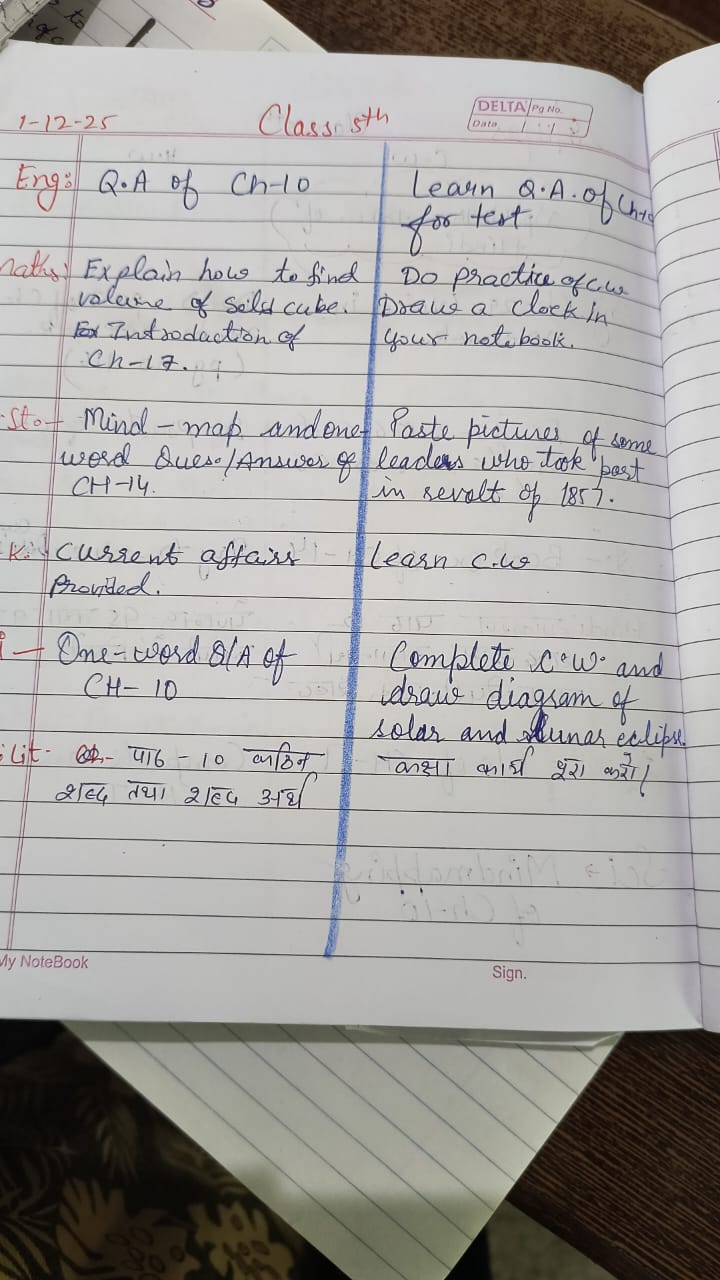 1-12-25 Class 5th
DELTA Pg No.
Date / /
Eng: Q.A of Ch-10
Learn Q.A. of Ch-10
for test.
maths: Explain how to find
volume of solid cube.
Introduction of
Ch-17.
Do practice of c.w
Draw a clock in
your notebook.
S.St. - Mind - map and one
word Ques./Answer of
CH-14.
Paste pictures of some
leaders who took part
in revolt of 1857.
K: Current affairs
Provided.
Learn c.w
i - One-word Q/A of
CH- 10
Complete C.W. and
draw diagram of
solar and lunar eclipse
Lit - पाठ - 10 कठिन
शब्द तथा शब्द अर्थ
कक्षा कार्य पूरा करो।
My NoteBook
Sign.